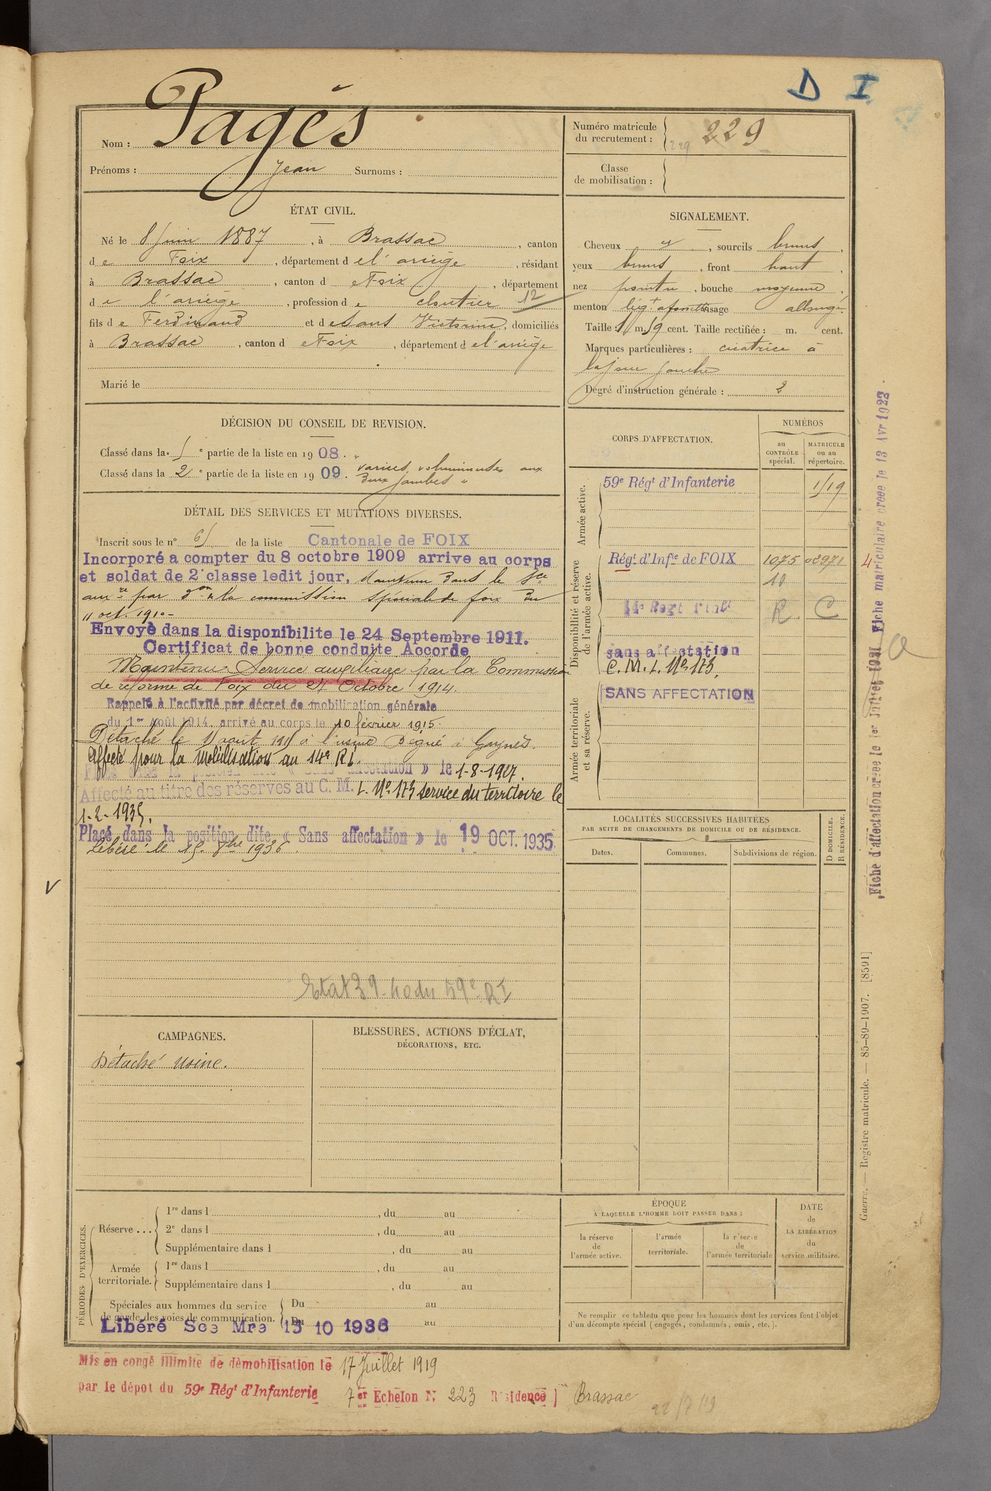 D I
Nom : Pagès
Prénoms : Jean Surnoms :
Numéro matricule du recrutement : 229 229
Classe de mobilisation :
ÉTAT CIVIL.
Né le 8 juin 1887, à Brassac, canton
de Foix, département de l'ariège, résidant
à Brassac, canton de Foix, département
de l'ariège, profession de cloutier 12
fils de Ferdinand et de Sans Victorine, domiciliés
à Brassac, canton de Foix, département de l'ariège
Marié le
SIGNALEMENT.
Cheveux, sourcils bruns,
yeux bruns, front haut,
nez pointu, bouche moyenne,
menton visage allongé.
Taille 1 m. cent. Taille rectifiée : m. cent.
Marques particulières : cicatrice à
la joue gauche
Degré d'instruction générale : 2
DÉCISION DU CONSEIL DE REVISION.
Classé dans la 1e partie de la liste en 1908.
Classé dans la 2e partie de la liste en 1909. varices volumineuses aux deux jambes
DÉTAIL DES SERVICES ET MUTATIONS DIVERSES.
Inscrit sous le n° 61 de la liste Cantonale de FOIX
Incorporé a compter du 8 octobre 1909 arrive au corps
et soldat de 2e classe ledit jour, maintenu dans le sce
aux re par don de la commission spéciale de foix du
11 oct. 1910-
Envoyé dans la disponibilite le 24 Septembre 1911.
Certificat de bonne conduite Accorde
Maintenu Service auxiliaire par la Commission
de réforme de Foix du 21 Octobre 1914.
Rappelé à l'activité par décret de mobilisation générale
du 1er août 1914, arrivé au corps le 10 février 1915.
Détaché le août à l'usine
Affecté pour la mobilisation au 14e R.I.
affectation » le 1-8-1927.
Affecté au titre des réserves au C. M. L. N° 173 service du territoire le
1-2-1935.
Placé dans la position dite « Sans affectation » le 19 OCT. 1935
Libéré le 15 1936
V
Etat 39 59e RI
CORPS D'AFFECTATION.
NUMÉROS
au CONTRÔLE spécial.
MATRICULE ou au répertoire.
Armée active.
59e Régt d'Infanterie 1/19
Disponibilité et réserve de l'armée active.
Régt. d'Infie de FOIX 1075
14e Régt d'Infie R. C
sans affectation
C. M. L. N° 173.
Armée territoriale et sa réserve.
SANS AFFECTATION
LOCALITÉS SUCCESSIVES HABITÉES
PAR SUITE DE CHANGEMENTS DE DOMICILE OU DE RÉSIDENCE.
Dates. Communes. Subdivisions de région. D DOMICILE. R RÉSIDENCE.
Fiche d'affectation créée le 1er Juillet 1921 Fiche matriculaire créée le 13 Avr 1923
CAMPAGNES.
Détaché usine.
BLESSURES, ACTIONS D'ÉCLAT,
DÉCORATIONS, ETC.
Guerre. — Registre matricule. — 85-89-1907. [8591]
PÉRIODES D'EXERCICES.
Réserve ... 1re dans l , du au
2e dans l , du au
Supplémentaire dans l , du au
Armée territoriale. 1re dans l , du au
Supplémentaire dans l , du au
Spéciales aux hommes du service de garde des voies de communication. Du au
Du au
Libéré Sce Mre 15 10 1936
ÉPOQUE
À LAQUELLE L'HOMME DOIT PASSER DANS :
la réserve de l'armée active. l'armée territoriale. la réserve de l'armée territoriale
DATE de LA LIBÉRATION du service militaire.
Ne remplir ce tableau que pour les hommes dont les services font l'objet
d'un décompte spécial (engagés, condamnés, omis, etc.).
Mis en congé illimité de démobilisation le 17 Juillet 1919
par le dépot du 59e Régt d'Infanterie 7er Echelon N. 223 Résidence ] Brassac
22/7/19